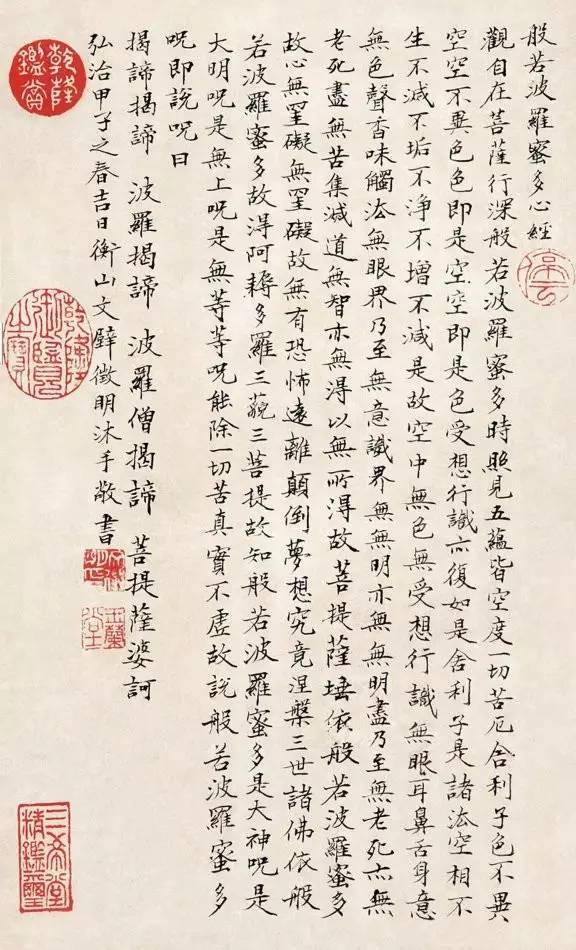 般若波羅蜜多心經
觀自在菩薩行深般若波羅蜜多時照見五蘊皆空度一切苦厄舍利子色不異
空空不異色色即是空空即是色受想行識亦復如是舍利子是諸法空相不
生不滅不垢不淨不增不減是故空中無色無受想行識無眼耳鼻舌身意
無色聲香味觸法無眼界乃至無意識界無無明亦無無明盡乃至無老死亦無
老死盡無苦集滅道無智亦無得以無所得故菩提薩埵依般若波羅蜜多
故心無罣礙無罣礙故無有恐怖遠離顛倒夢想究竟涅槃三世諸佛依般
若波羅蜜多故得阿耨多羅三藐三菩提故知般若波羅蜜多是大神呪是
大明呪是無上呪是無等等呪能除一切苦真實不虛故說般若波羅蜜多
呪即說呪曰
揭諦揭諦 波羅揭諦 波羅僧揭諦 菩提薩婆訶
弘治甲子之春吉日衡山文壁徵明沐手敬書
停雲
乾隆鑑賞
乾隆御覽之寶
玉蘭堂
三希堂精鑑璽